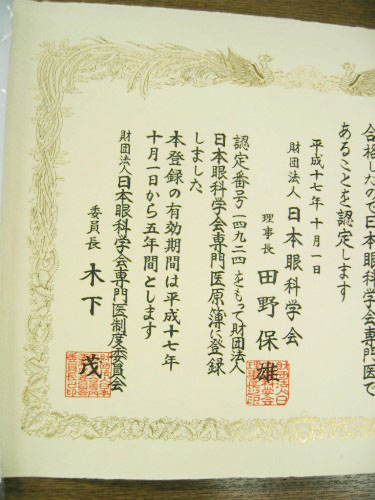 合格したので日本眼科学会専門医で
あることを認定します
平成十七年十月一日
財団法人 日本眼科学会
理事長 田野保雄
認定番号一四九二四をもって財団法人
日本眼科学会専門医原簿に登録
しました
本登録の有効期間は平成十七年
十月一日から五年間とします
財団法人日本眼科学会専門医制度委員会
委員長 木下茂